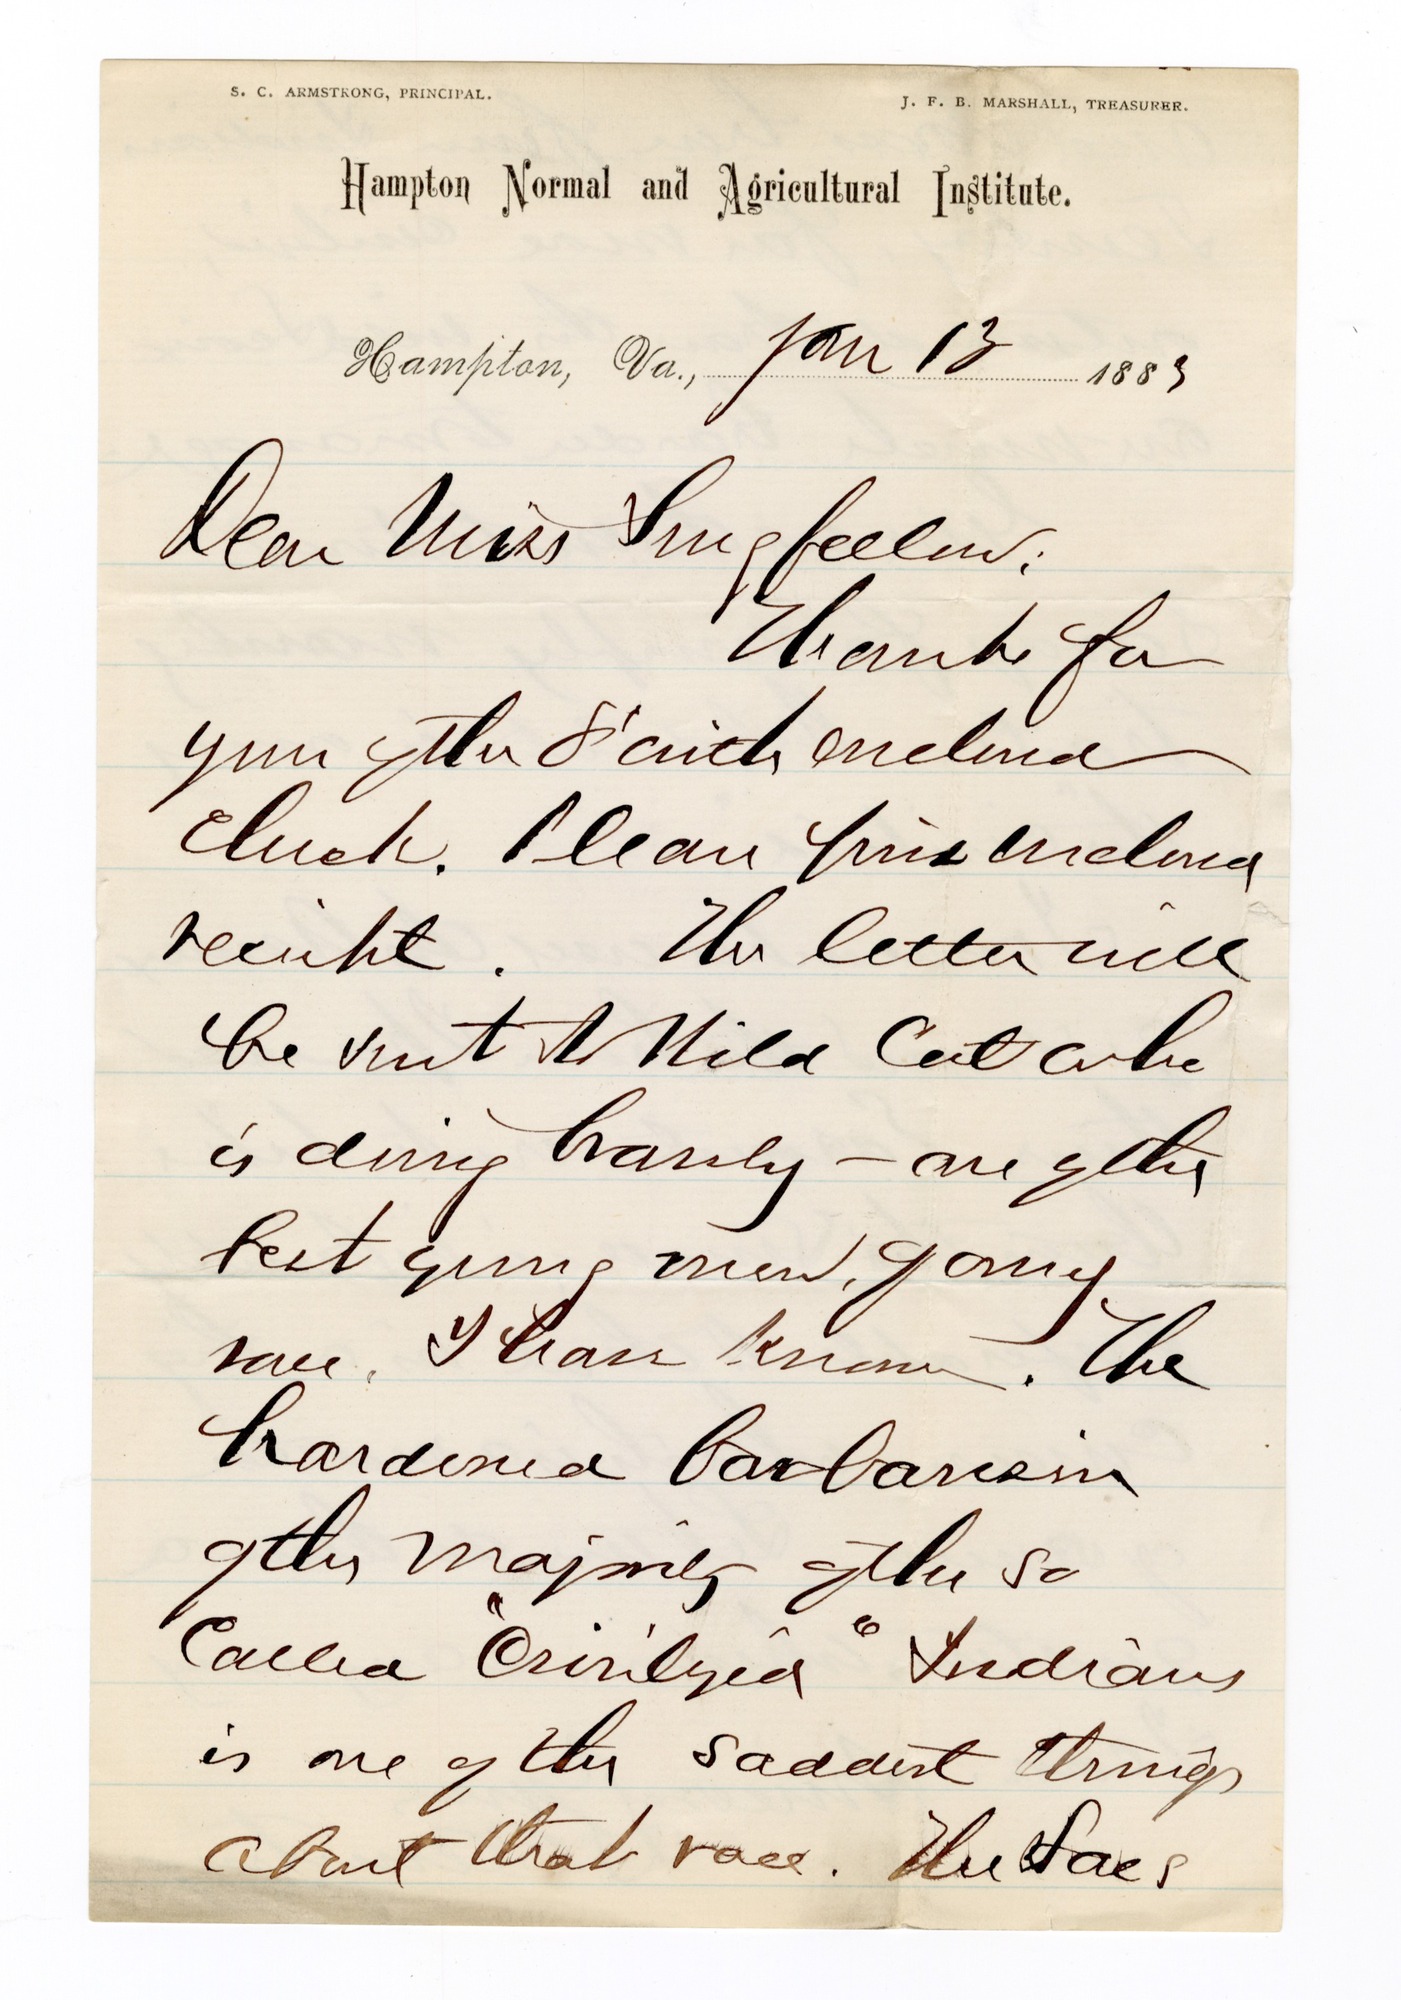 S. C. ARMSTRONG, PRINCIPAL.
J. F. B. MARSHALL, TREASURER.
Hampton Normal and Agricultural Institute.
Hampton, Va., Jan 13 1883
Dear Miss Longfellow:
Thanks for
your of the 8th with enclosed
check. Please find enclosed
receipt. The letter will
be sent to Wild Cat who
is doing bravely — one of the
best young men, of any
race, I have known. The
hardened barbarism
of the majority of the so
called "Civilized" Indians
is one of the saddest things
about that race. The Sacs